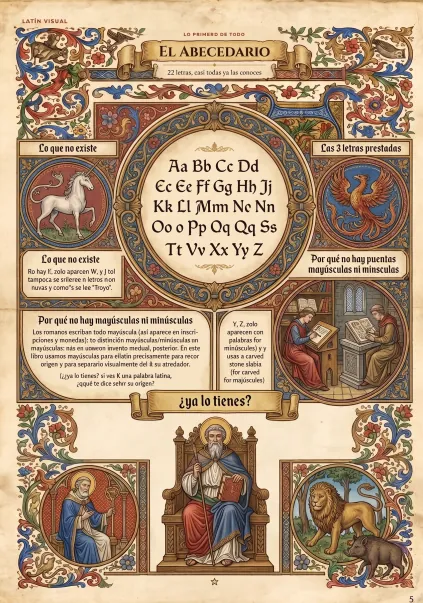 LATÍN VISUAL
LO PRIMERO DE TODO
EL ABECEDARIO
22 letras, casi todas ya las conoces
Lo que no existe
Las 3 letras prestadas
Aa Bb Cc Dd
Єc Єe Ff Gg Hh Jj
Kk Ll Mm Nc Nn
Oo o Pp Oq Qq Ss
Tt Vv Xx Yy Z
Lo que no existe
Ro hay Y, zolo aparcen W, y J tol
tampoca se srileree n letros non
nuvas y como"s se lee "Troyo".
Por qué no hay puentas
mayúsculas ni mínsculas
Por qué no hay mayúsculas ni minúsculas
Los romanos escriban todo mayúscula (así aparece en inscri-
pciones y monedas): to distinción mayúsculas/minúsculas un
mayúsculas: nás en uoweron invento medual, posterior. En este
libro usamos mayúsculas para ellatín precisamente para recor
origen y para separario visualmente del & su atredador.
¿ya lo tienes? si ves K una palabra latina,
¿qué te dice sehrr su origen?
Y, Z, zolo
aparecen con
palabras for
minúsules) y y
usas a carved
stone slabia
(for carved
for majúscules)
¿ya lo tienes?
5